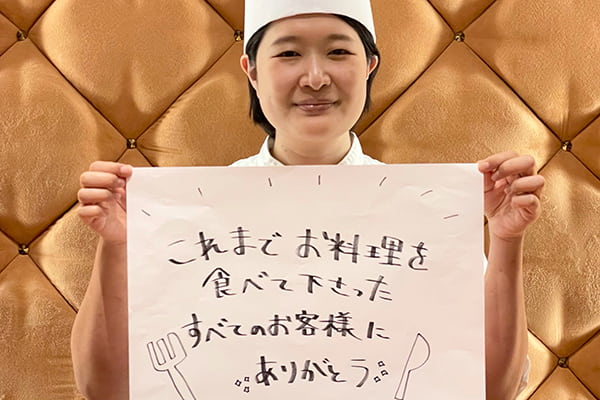 これまでお料理を
食べて下さった
すべてのお客様に
ありがとう